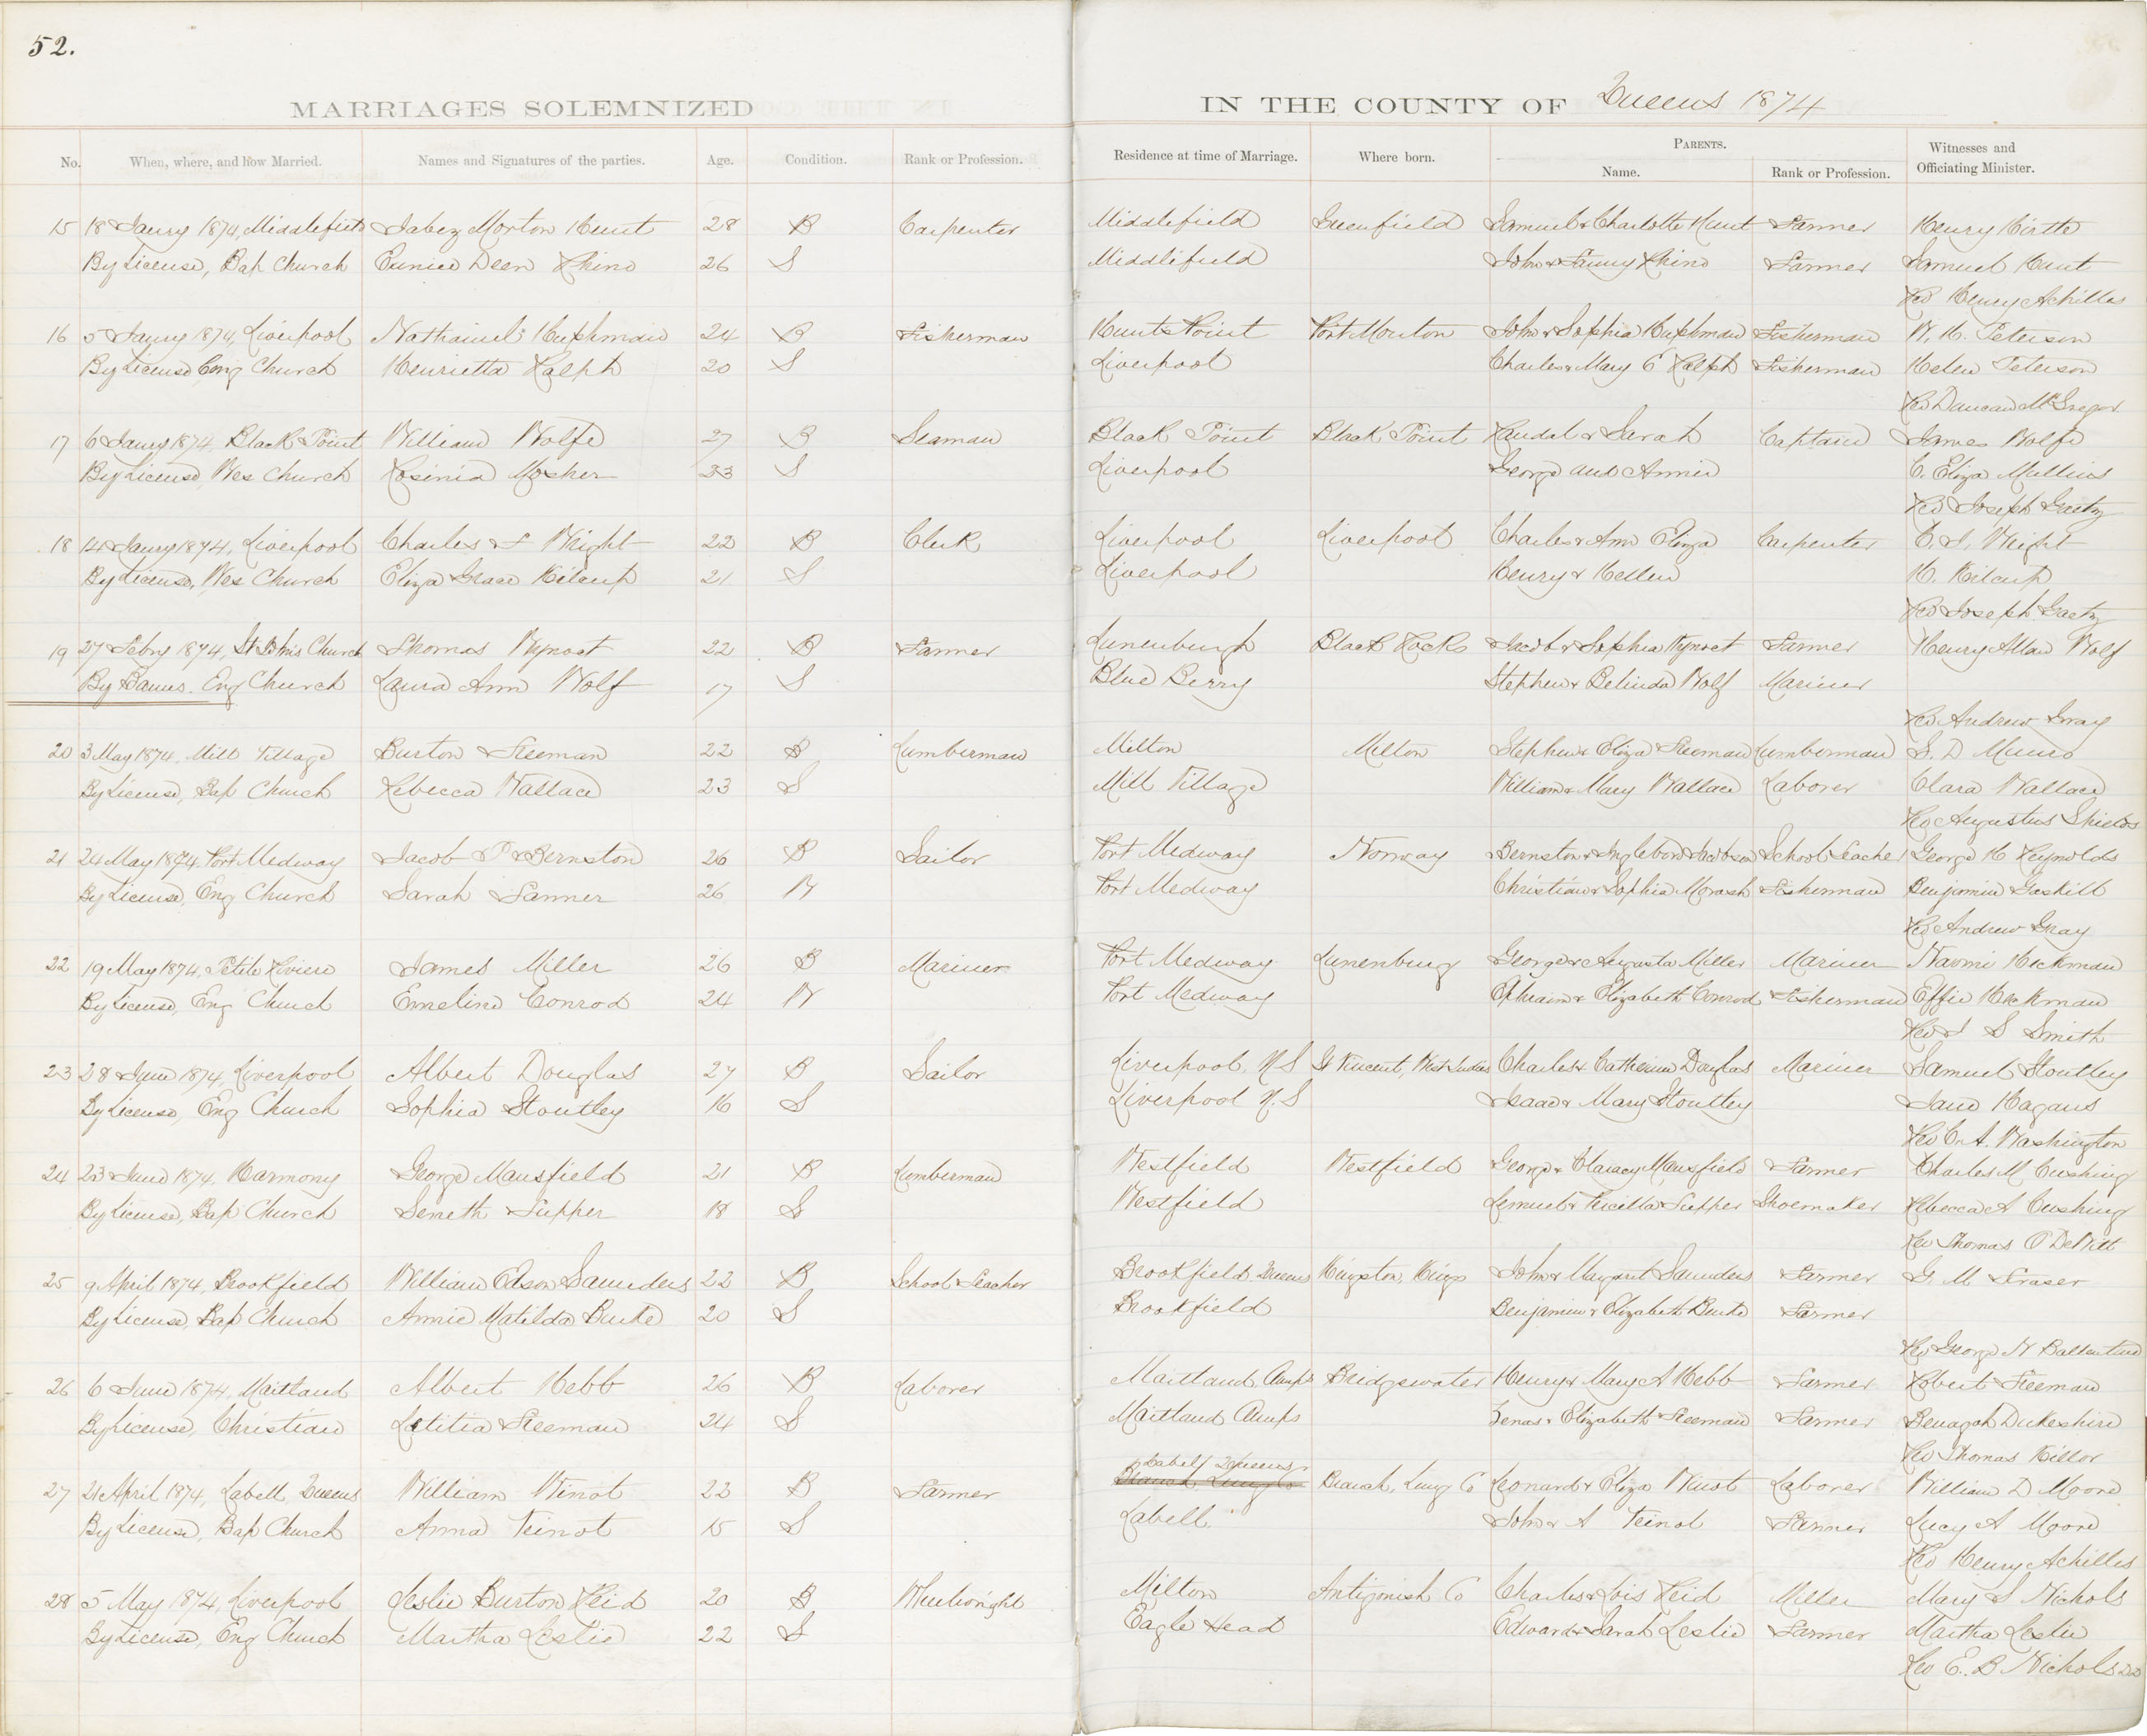 52.
MARRIAGES SOLEMNIZED IN THE COUNTY OF Queens 1874
No. When, where, and how Married. Names and Signatures of the parties. Age. Condition. Rank or Profession. Residence at time of Marriage. Where born. PARENTS. Witnesses and
Name. Rank or Profession. Officiating Minister.
15 18 Jany 1874, Middlefield Jabez Morton Hunt 28 B Carpenter Middlefield Greenfield Samuel & Charlotte Hunt Farmer Henry Hirtle
By License, Bap Church Eunice Deen Rhino 26 S Middlefield John & Fanny Rhino Farmer Samuel Hunt
Rev Henry Achilles
16 5 Jany 1874, Liverpool Nathaniel Huphman 24 B Fisherman Hunts Point Port Mouton John & Sophia Huphman Fisherman W. H. Peterson
By License Cong Church Henrietta Ralph 20 S Liverpool Charles & Mary C Ralph Fisherman Helen Peterson
Rev Duncan McGregor
17 6 Jany 1874, Black Point William Wolfe 27 B Seaman Black Point Black Point Randal & Sarah Captain James Wolfe
By License, Wes Church Rosinia Mosher 23 S Liverpool George and Annie C. Eliza Mullins
Rev Joseph Gaetz
18 14 Jany 1874, Liverpool Charles F Wright 22 B Clerk Liverpool Liverpool Charles & Ann Eliza Carpenter C. F. Wright
By License, Wes Church Eliza Grace Kilcup 21 S Liverpool Henry & Hellen H. Kilcup
Rev Joseph Gaetz
19 27 Febry 1874, St Johns Church Thomas Wynoct 22 B Farmer Lunenburgh Black Rocks Jacob & Sophia Wynoct Farmer Henry Allan Wolf
By Banns. Eng Church Laura Ann Wolf 17 S Blue Berry Stephen & Belinda Wolf Mariner
Rev Andrew Gray
20 3 May 1874, Mill Village Burton Freeman 22 B Lumberman Milton Milton Stephen & Eliza Freeman Lumberman S. D Munro
By License, Bap Church Rebecca Wallace 23 S Mill Village William & Mary Wallace Laborer Clara Wallace
Rev Augustus Shields
21 24 May 1874, Port Medway Jacob P Bernston 26 B Sailor Port Medway Norway Bernston & Jacobson School Teacher George H Reynolds
By License, Eng Church Sarah Tanner 26 W Port Medway Christian & Sophia Morash Fisherman Benjamin Gaskill
Rev Andrew Gray
22 19 May 1874, Petite Riviere James Miller 26 B Mariner Port Medway Lunenburg George & Augusta Miller Mariner Naomi Heckman
By License, Eng Church Emeline Conrod 24 W Port Medway Ephraim & Elizabeth Conrod Fisherman Effie Heckman
Rev J S Smith
23 28 June 1874, Liverpool Albert Douglas 27 B Sailor Liverpool, N.S St Vincent, West Indies Charles & Catherine Douglas Mariner Samuel Stoutley
By License, Eng Church Sophia Stoutley 16 S Liverpool N.S Isaac & Mary Stoutley Jane Hagans
Rev Washington
24 23 June 1874, Harmony George Mansfield 21 B Lumberman Westfield Westfield George & Mansfield Farmer Charles M Cushing
By License, Bap Church Semeth Tupper 18 S Westfield Lemuel & Tupper Shoemaker Rebecca A Cushing
Rev Thomas O DeWitt
25 9 April 1874, Brookfield William Edson Saunders 22 B School Teacher Brookfield, Queens Kingston, Kings John & Margaret Saunders Farmer G. M Fraser
By License, Bap Church Annie Matilda Burke 20 S Brookfield Benjamin & Elizabeth Burke Farmer
Rev George N Ballentine
26 6 June 1874, Maitland Albert Hebb 26 B Laborer Maitland Anaps Bridgewater Henry & Mary A Hebb Farmer Robert Freeman
By License, Christian Letitia Freeman 24 S Maitland Anaps Zenas & Elizabeth Freeman Farmer Benajah Dukeshire
Rev Thomas Killor
Labell Queens
27 21 April 1874, Labell Queens William Winot 23 B Farmer Leonard & Eliza Winot Laborer William D Moore
By License, Bap Church Anna Veinot 15 S Labell. John & A Veinot Farmer Lucy A Moore
Rev Henry Achilles
28 5 May 1874, Liverpool Leslie Burton Reid 20 B Millwright Milton Antigonish Co Charles & Lois Reid Miller Mary S Nichols
By License, Eng Church Martha Leslie 22 S Eagle Head Edward & Sarah Leslie Farmer Martha Leslie
Rev E. B Nichols DD